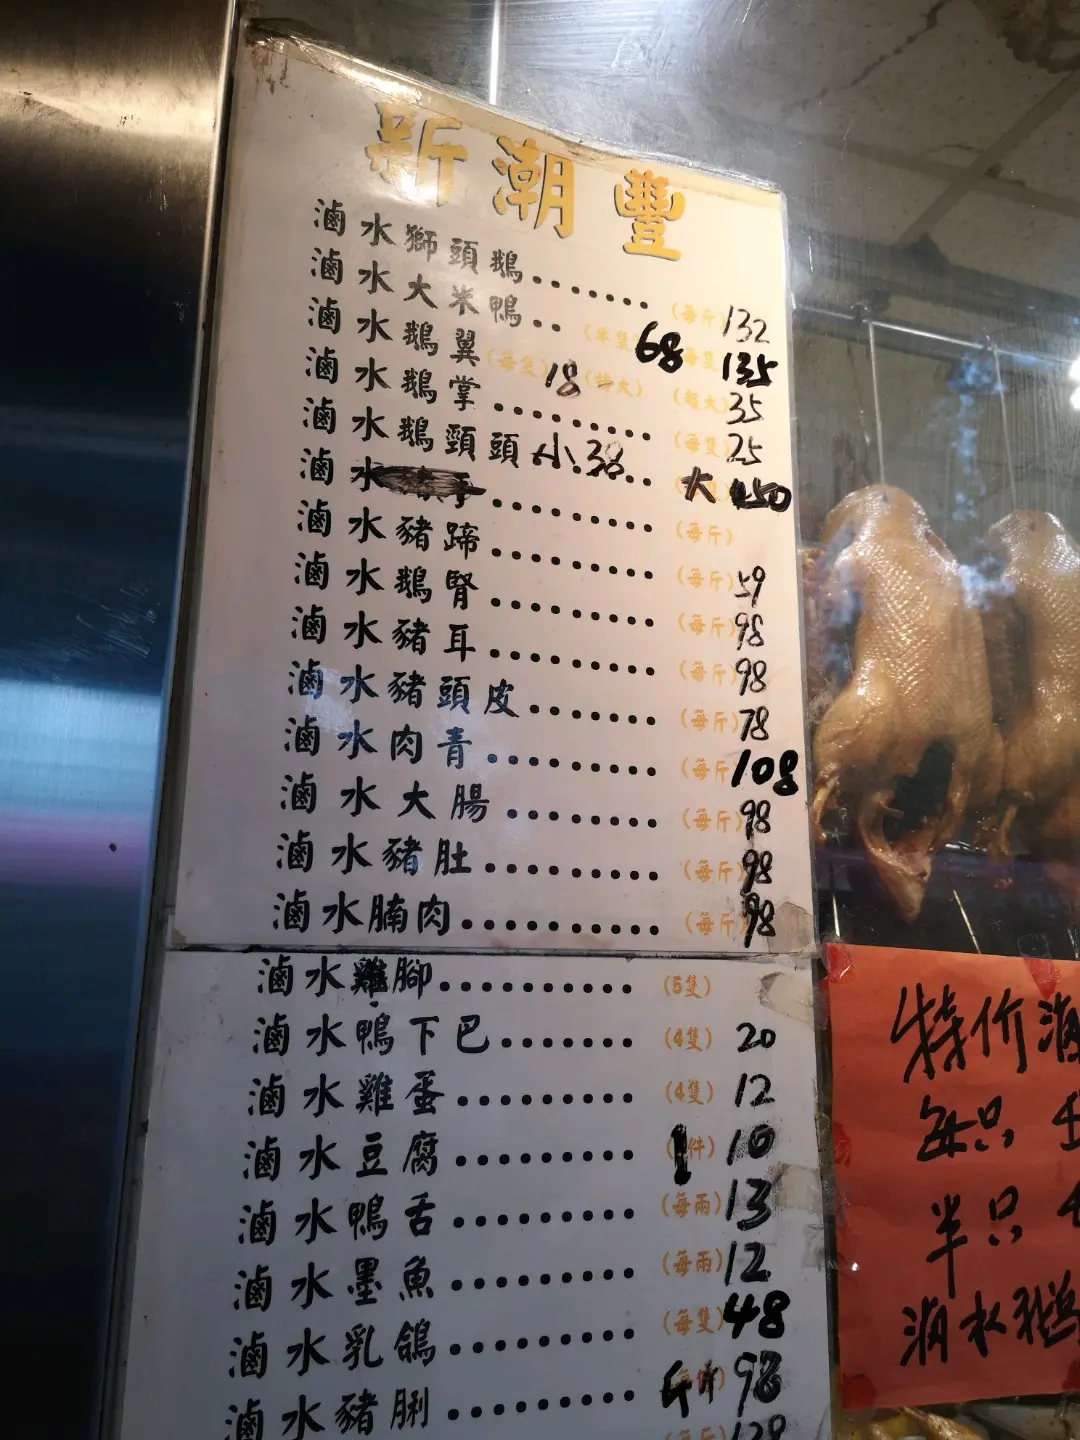 新潮豐
滷水獅頭鵝.......(每斤)132
滷水大米鴨..(半隻)68(每隻)135
滷水鵝翼(每隻)18(特大)(超大)35
滷水鵝掌.........(每隻)25
滷水鵝頸頭小38..大150
滷水手.........(每斤)
滷水豬蹄.........(每斤)59
滷水鵝腎.........(每斤)98
滷水豬耳.........(每斤)98
滷水豬頭皮.......(每斤)78
滷水肉青.........(每斤)108
滷水大腸........(每斤)98
滷水豬肚..........(每斤)98
滷水腩肉..........(每斤)98
滷水雞腳..........(5隻)
滷水鴨下巴.......(4隻)20
滷水雞蛋.........(4隻)12
滷水豆腐.........(1件)10
滷水鴨舌.........(每兩)13
滷水墨魚.........(每兩)12
滷水乳鴿.........(每隻)48
滷水豬脷.........斤98
(每斤)128
特价滷
每只
半只
滷水鵝